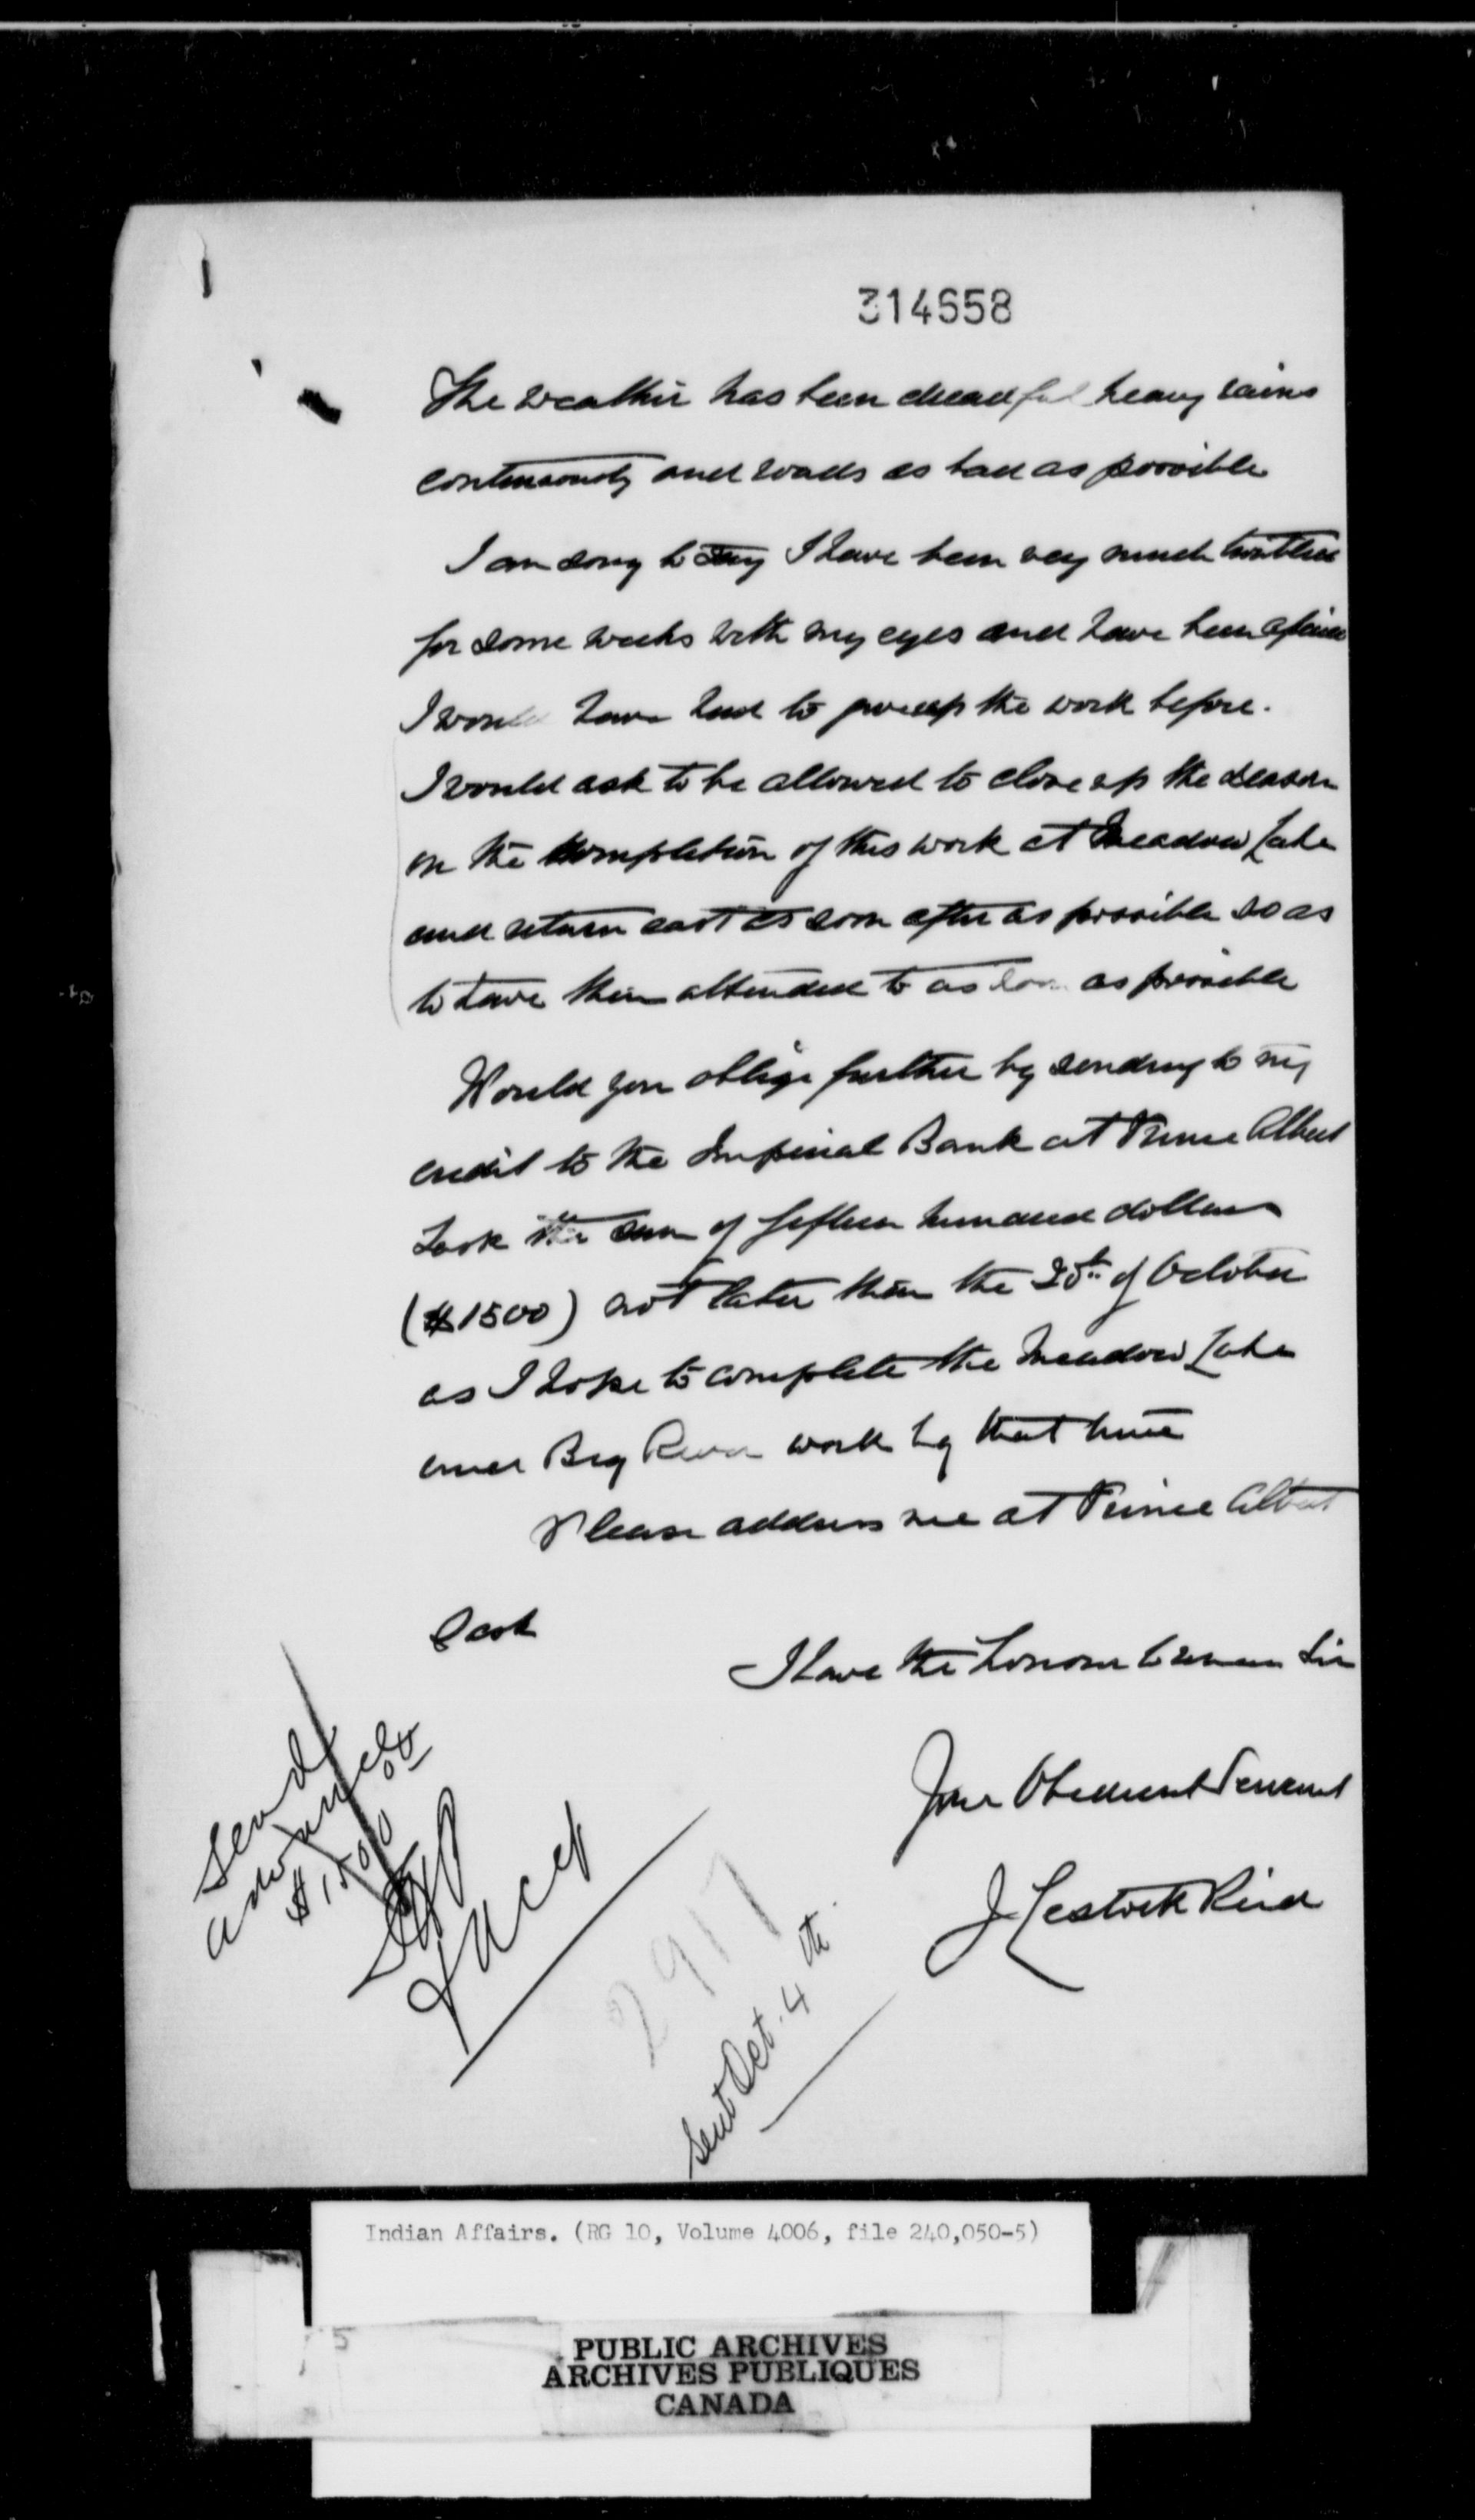 314658
The weather has been dreadful heavy rains
continuously and roads as bad as possible
I am sorry to say I have been very much troubled
for some weeks with my eyes and have been afraid
I would have had to give up the work before.
I would ask to be allowed to close up the season
on the completion of this work at Meadow Lake
and return east as soon after as possible so as
to have them attended to as soon as possible
Would you oblige further by sending to my
credit to the Imperial Bank at Prince Albert
Sask the sum of fifteen hundred dollars
($1500) not later than the 25th of October
as I hope to complete the Meadow Lake
and Big River work by that time
Please address me at Prince Albert
Sask
I have the honour to remain Sir
Your Obedient Servant
J Lestock Reid
Send
advance
$1500
2917
Sent Oct. 4th
Indian Affairs. (RG 10, Volume 4006, file 240,050-5)
5
PUBLIC ARCHIVES
ARCHIVES PUBLIQUES
CANADA